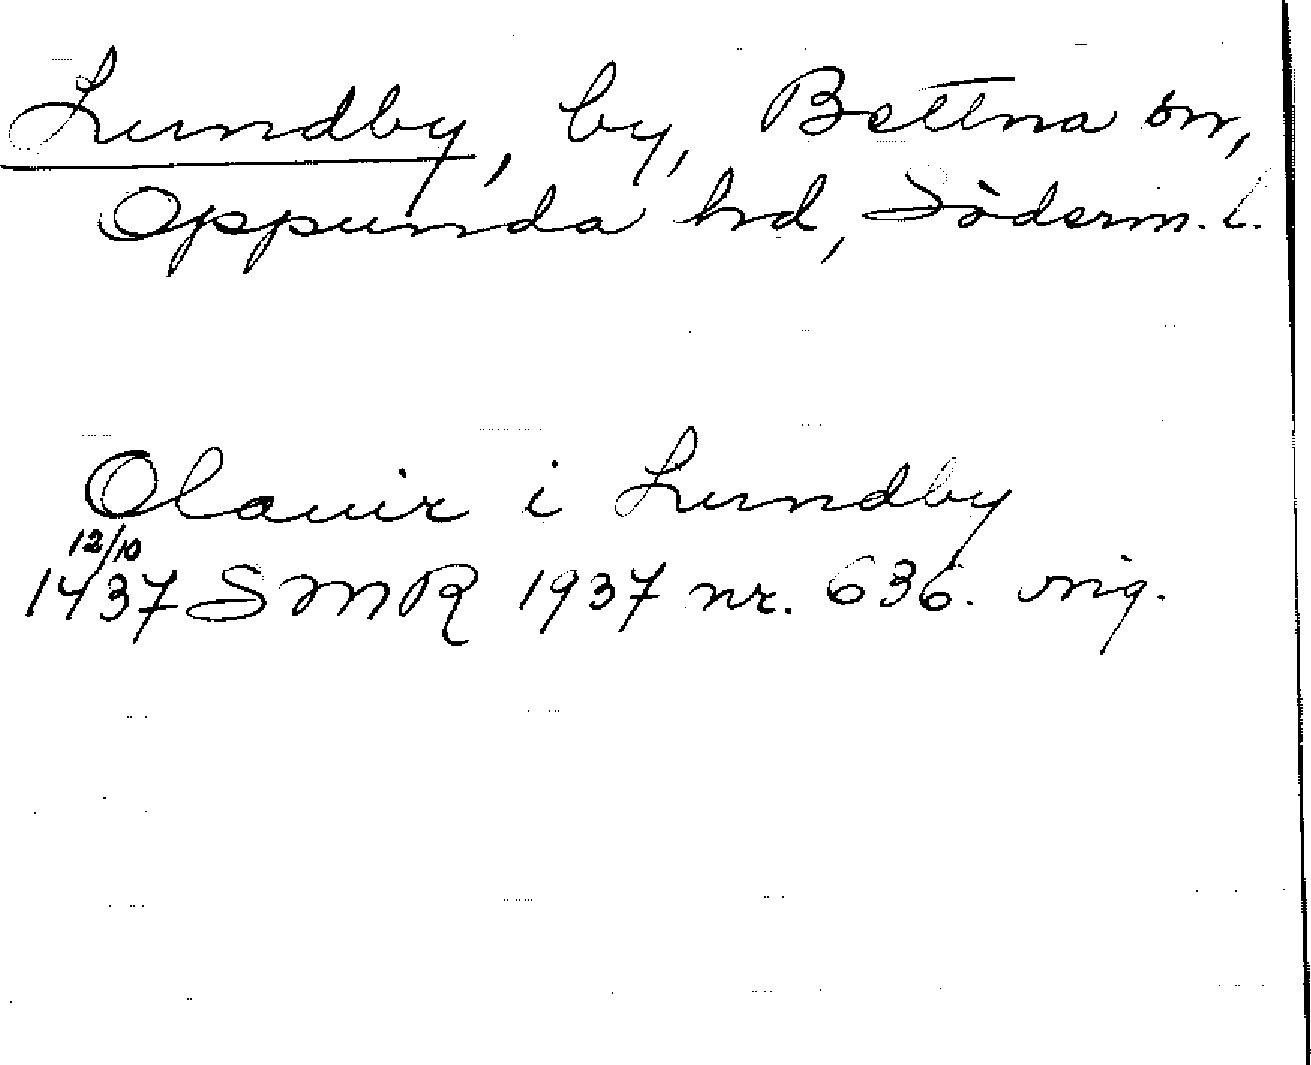 Lundby, by, Bettna sn,
Oppunda hd, Söderm. l.
Olauir i Lundby
12/10
1437 SMR 1937 nr. 636. orig.